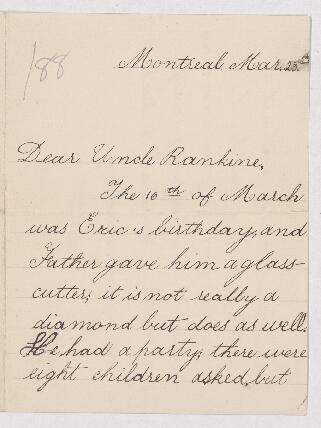 /88
Montreal Mar. 25.
Dear Uncle Rankine,
The 10th of March
was Eric's birthday, and
Father gave him a glass-
cutter; it is not really a
diamond but does as well.
He had a party; there were
eight children asked, but